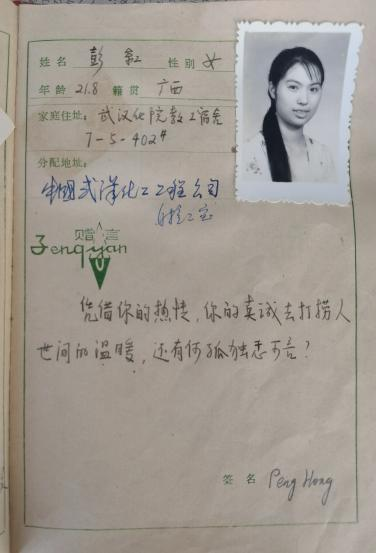 姓名 彭红 性别 女
年龄 21.8 籍贯 广西
家庭住址: 武汉化院教工宿舍
7-5-402#
分配地址:
中国武汉化工工程公司
赠言
Zengyan
凭借你的热情,你的真诚去打捞人
世间的温暖,还有何孤独悉可言?
签名 Peng Hong